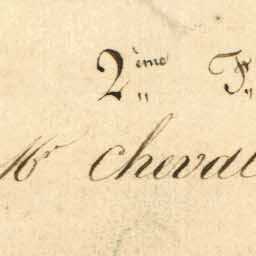 2ème Fr
Mr Cheval